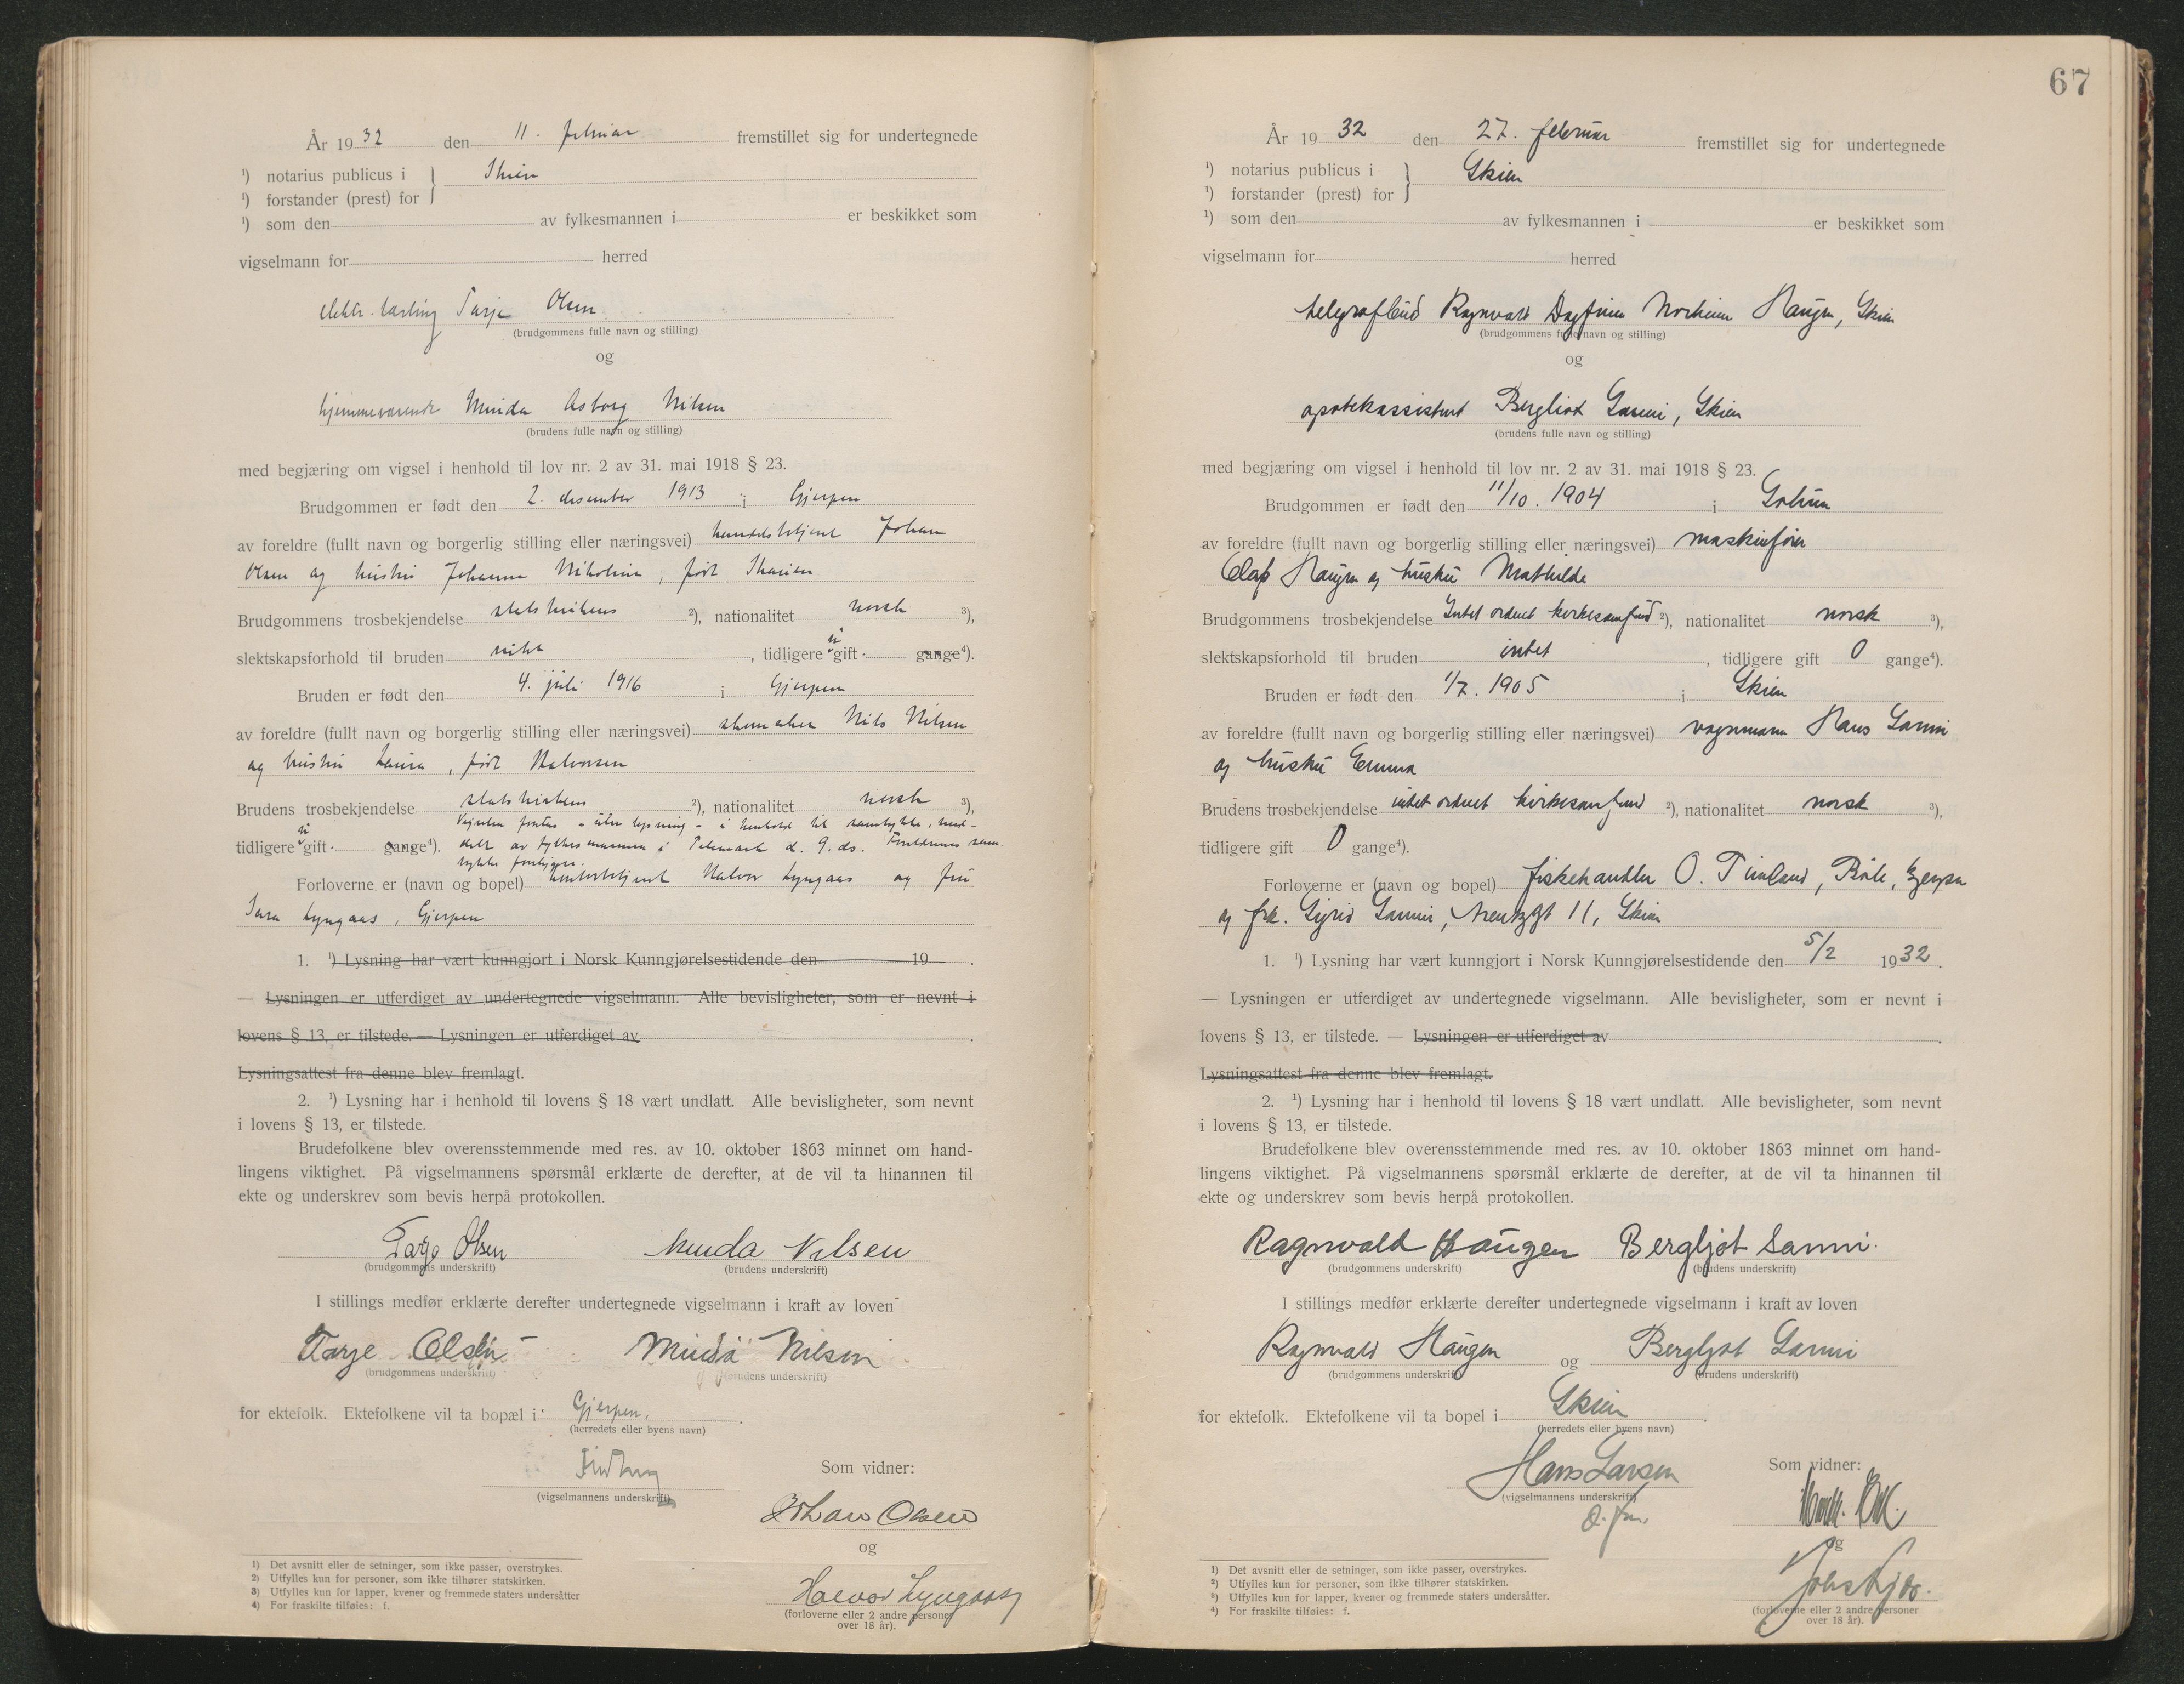 År 1932 den 11. februar fremstillet sig for undertegnede
¹) notarius publicus i } Skien
¹) forstander (prest) for
¹) som den av fylkesmannen i er beskikket som
vigselmann for herred
elektr. lærling Tarje Olsen
(brudgommens fulle navn og stilling)
og
hjemmeværende Minda Asborg Nilsen
(brudens fulle navn og stilling)
med begjæring om vigsel i henhold til lov nr. 2 av 31. mai 1918 § 23.
Brudgommen er født den 2. desember 1913 i Gjerpen
av foreldre (fullt navn og borgerlig stilling eller næringsvei) handelsbetjent Johan
Olsen og hustru Johanne Nikoline, født
Brudgommens trosbekjendelse statskirkens ²), nationalitet norsk ³),
slektskapsforhold til bruden intet, tidligere ei gift gange⁴).
Bruden er født den 4. juli 1916 i Gjerpen
av foreldre (fullt navn og borgerlig stilling eller næringsvei) skomaker Nils Nilsen
og hustru Laura, født Halvorsen
Brudens trosbekjendelse statskirkens ²), nationalitet norsk ³),
Vigselen foretas - uten lysning - i henhold til samtykke, med-
tidligere ei gift gange⁴). delt av fylkesmannen i Telemark d. 9. ds. Foreldrenes sam-
tykke foreligger.
Forloverne er (navn og bopel) kontorbetjent Halvor Lyngaas og fru
Sara Lyngaas, Gjerpen
1. ¹) Lysning har vært kunngjort i Norsk Kunngjørelsestidende den 19 .
— Lysningen er utferdiget av undertegnede vigselmann. Alle bevisligheter, som er nevnt i
lovens § 13, er tilstede. — Lysningen er utferdiget av .
Lysningsattest fra denne blev fremlagt.
2. ¹) Lysning har i henhold til lovens § 18 vært undlatt. Alle bevisligheter, som nevnt
i lovens § 13, er tilstede.
Brudefolkene blev overensstemmende med res. av 10. oktober 1863 minnet om hand-
lingens viktighet. På vigselmannens spørsmål erklærte de derefter, at de vil ta hinannen til
ekte og underskrev som bevis herpå protokollen.
Tarje Olsen Minda Nilsen
(brudgommens underskrift) (brudens underskrift)
I stillings medfør erklærte derefter undertegnede vigselmann i kraft av loven
Tarje Olsen Minda Nilsen
(brudgommens underskrift) (brudens underskrift)
for ektefolk. Ektefolkene vil ta bopæl i Gjerpen.
(herredets eller byens navn)
Som vidner:
(vigselmannens underskrift)
Johan Olsen
og
Halvor Lyngaas
(forloverne eller 2 andre personer
over 18 år).
1) Det avsnitt eller de setninger, som ikke passer, overstrykes.
2) Utfylles kun for personer, som ikke tilhører statskirken.
3) Utfylles kun for lapper, kvener og fremmede staters undersåtter
4) For fraskilte tilføies: f.
67
År 1932 den 27. februar fremstillet sig for undertegnede
¹) notarius publicus i } Skien
¹) forstander (prest) for
¹) som den av fylkesmannen i er beskikket som
vigselmann for herred
telegrafbud Ragnvald Dagfinn Norheim Haugen, Skien
(brudgommens fulle navn og stilling)
og
apotekassistent Bergliot Sanni, Skien
(brudens fulle navn og stilling)
med begjæring om vigsel i henhold til lov nr. 2 av 31. mai 1918 § 23.
Brudgommen er født den 11/10. 1904 i Solum
av foreldre (fullt navn og borgerlig stilling eller næringsvei) maskinfører
Olaf Haugen og hustru Mathilde
Brudgommens trosbekjendelse Intet ordnet kirkesamfund ²), nationalitet norsk ³),
slektskapsforhold til bruden intet, tidligere gift 0 gange⁴).
Bruden er født den 1/7. 1905 i Skien
av foreldre (fullt navn og borgerlig stilling eller næringsvei) vognmann Hans Sanni
og hustru Emma
Brudens trosbekjendelse intet ordnet kirkesamfund ²), nationalitet norsk ³),
tidligere gift 0 gange⁴).
Forloverne er (navn og bopel) fiskehandler O. Timland, Bøle, Gjerpen
og frk. Sigrid Sanni, 11, Skien
1. ¹) Lysning har vært kunngjort i Norsk Kunngjørelsestidende den 5/2 1932.
— Lysningen er utferdiget av undertegnede vigselmann. Alle bevisligheter, som er nevnt i
lovens § 13, er tilstede. — Lysningen er utferdiget av .
Lysningsattest fra denne blev fremlagt.
2. ¹) Lysning har i henhold til lovens § 18 vært undlatt. Alle bevisligheter, som nevnt
i lovens § 13, er tilstede.
Brudefolkene blev overensstemmende med res. av 10. oktober 1863 minnet om hand-
lingens viktighet. På vigselmannens spørsmål erklærte de derefter, at de vil ta hinannen til
ekte og underskrev som bevis herpå protokollen.
Ragnvald Haugen Bergljot Sanni.
(brudgommens underskrift) (brudens underskrift)
I stillings medfør erklærte derefter undertegnede vigselmann i kraft av loven
Ragnvald Haugen og Bergljot Sanni
(brudgommens underskrift) (brudens underskrift)
for ektefolk. Ektefolkene vil ta bopel i Skien.
(herredets eller byens navn)
Hans Larsen Som vidner:
(vigselmannens underskrift)
og
(forloverne eller 2 andre personer
over 18 år).
1) Det avsnitt eller de setninger, som ikke passer, overstrykes.
2) Utfylles kun for personer, som ikke tilhører statskirken.
3) Utfylles kun for lapper, kvener og fremmede staters undersåtter.
4) For fraskilte tilføies: f.